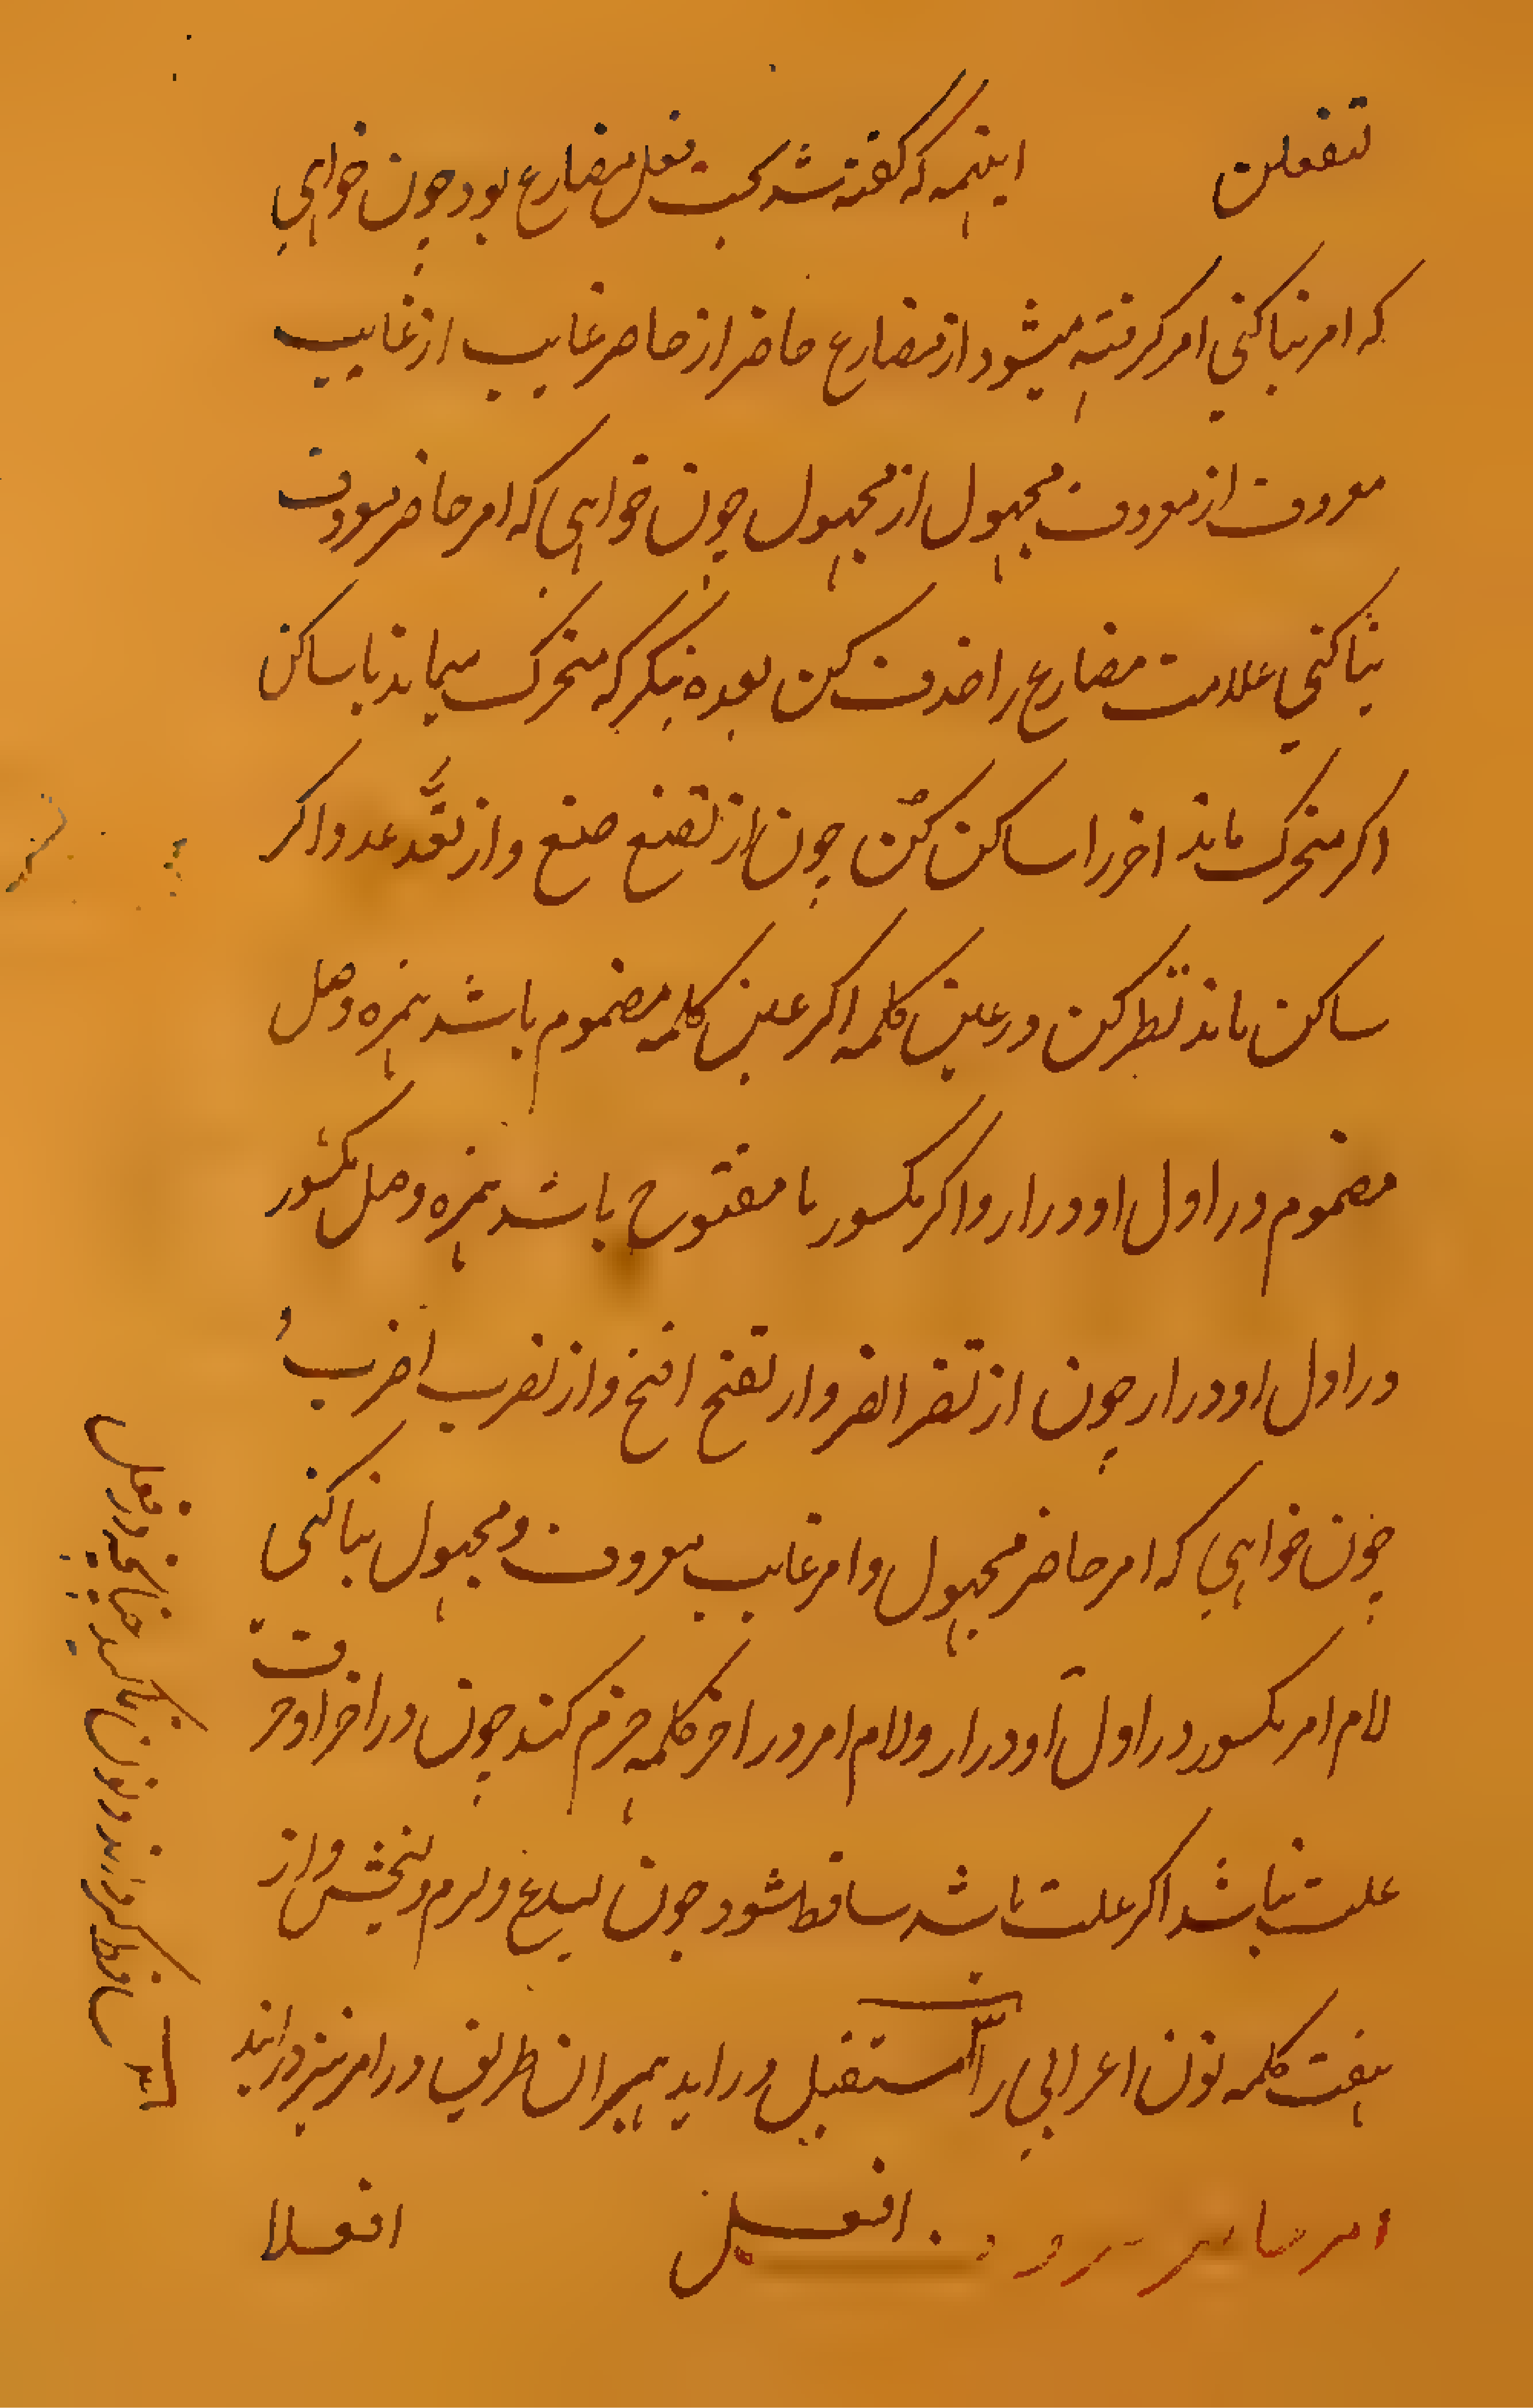 تفعلن اینهمه که گفته شد بحث فعل مضارع بود چون خواهی
که امر بنا کنی امر گرفته میشود از مضارع حاضر از حاضر غایب از غایب
معروف از معروف مجهول از مجهول چون خواهی که امر حاضر معروف
بنا کنی علامت مضارع را حذف کن بعده بنگر که متحرک میماند یا ساکن
اگر متحرک ماند اخر را ساکن کن چون از تضع ضع و از تعد عد و اگر
ساکن ماند نظر کن در عین کلمه اگر عین کلمه مضموم باشد همزه وصل
مضموم در اول او درار و اگر مکسور یا مفتوح باشد همزه وصل مکسور
در اول او درار چون از تنصر انصر و از تفتح افتح و از تضرب اضرب
چون خواهی که امر حاضر مجهول و امر غایب معروف و مجهول بنا کنی
لام امر مکسور در اول او درار و لام امر در اخر کلمه جزم کند چون در اخر او حرف
علت نباشد اگر علت باشد ساقط شود چون لیدع و لیرم و لیخش و از
هفت کلمه نون اعرابی را
مستقبل در اید بهمان طریق در امر نیز در ایند
امر حاضر معروف افعل افعلا
ساقط گرداند و نون تاکید چنانچه در فعل